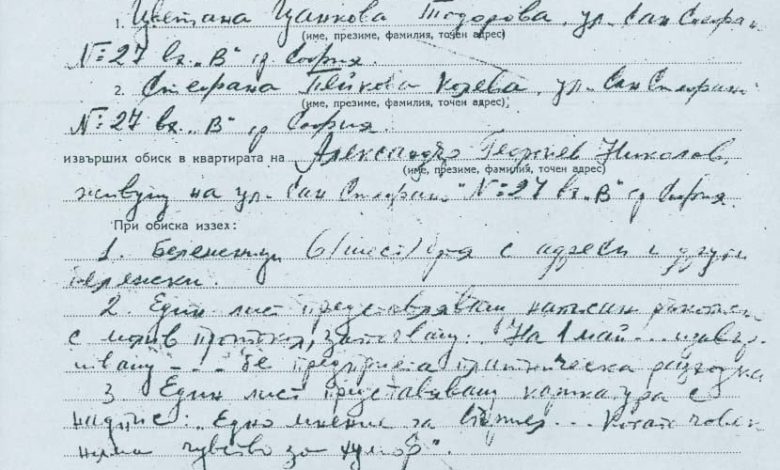 1. Цветана Цанкова Тодорова, ул. "Сан Стефано"
(име, презиме, фамилия, точен адрес)
№ 27 вх. "В" гр. София.
2. Стефана Пейкова Колева, ул. "Сан Стефано"
(име, презиме, фамилия, точен адрес)
№ 27 вх. "В" гр. София.
извърших обиск в квартирата на Александър Георгиев Николов,
(име, презиме, фамилия, точен адрес)
живущ на ул. "Сан Стефано" № 27 вх. "В" гр. София.
При обиска иззех:
1. Бележници 6/шест/ броя с адреси и други
бележки.
2. Един лист представляващ написан ръкописно
с молив протокол, започващ: "На 1 май...
... бе предприета туристическа разходка
3. Един лист представляващ карикатура с
надпис: "Едно мнение за ... Когато човек
няма чувство за хумор".